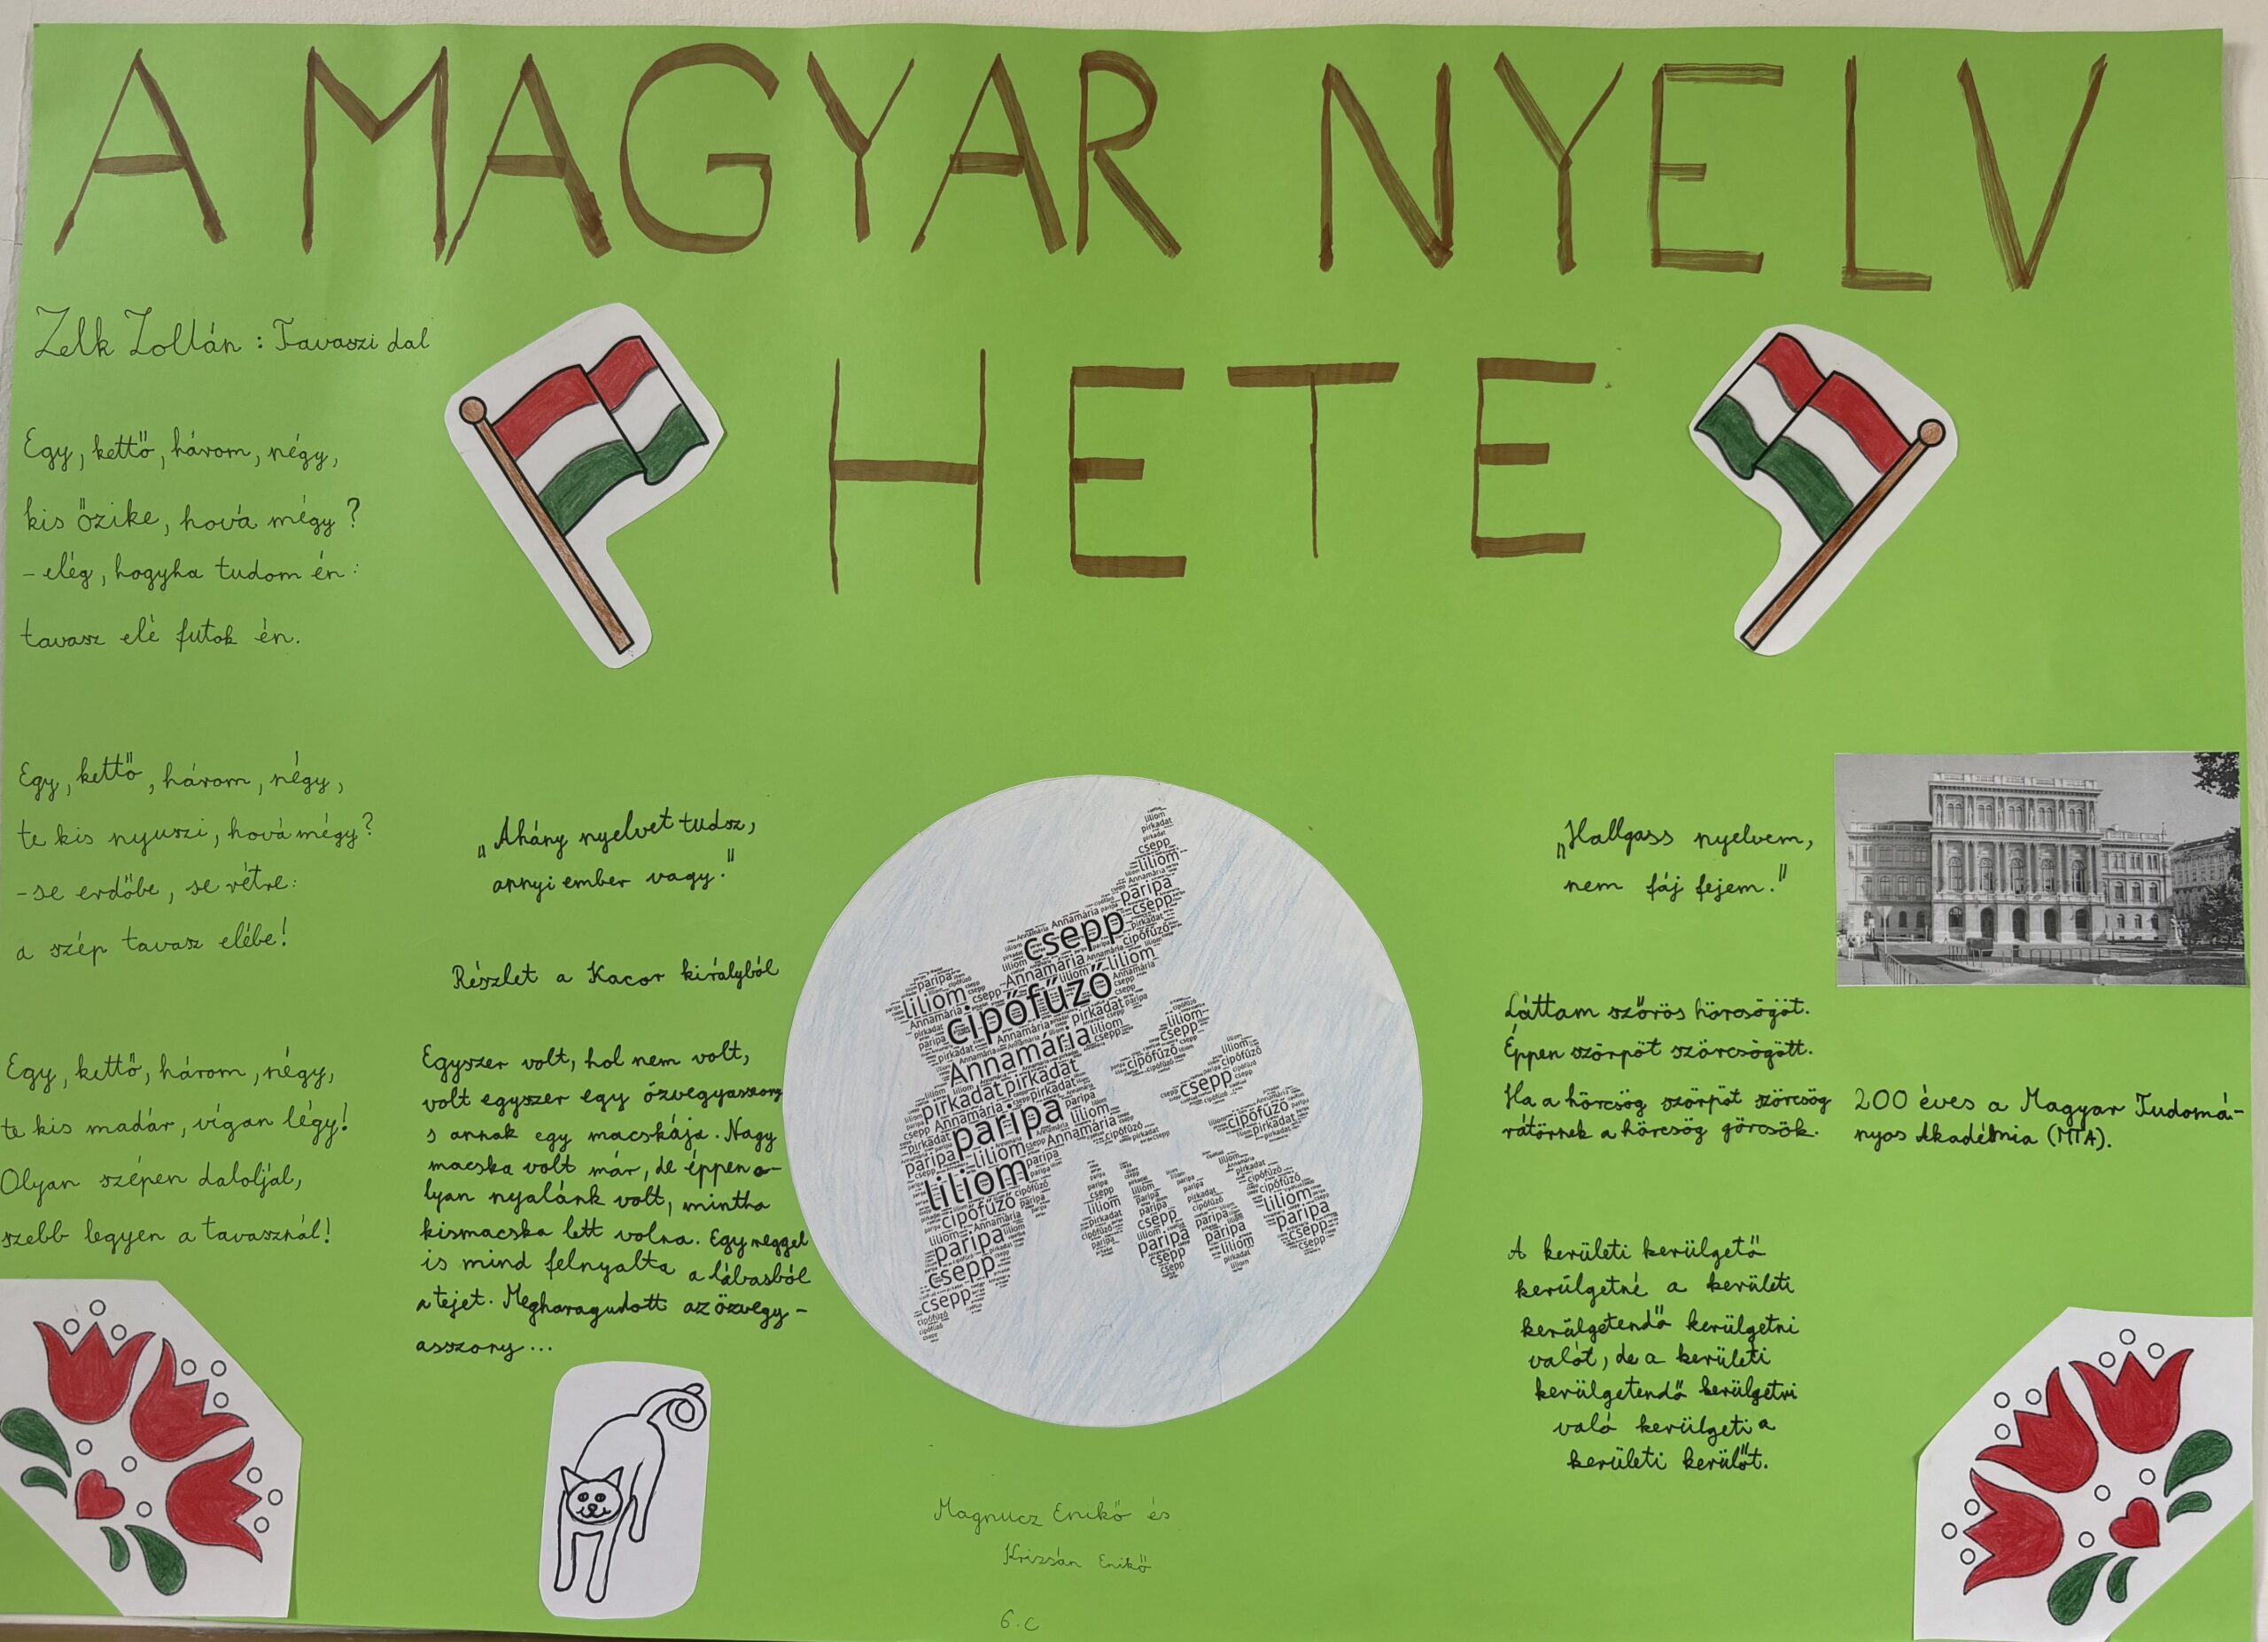 A MAGYAR NYELV
HETE
Zelk Zoltán: Tavaszi dal
Egy, kettő, három, négy,
kis őzike, hová mégy?
- elég, hogyha tudom én:
tavasz elé futok én.
Egy, kettő, három, négy,
te kis nyuszi, hová mégy?
- se erdőbe, se rétre:
a szép tavasz elébe!
Egy, kettő, három, négy,
te kis madár, vígan légy!
Olyan szépen daloljál,
szebb legyen a tavasznál!
„Ahány nyelvet tudsz,
annyi ember vagy."
Részlet a Kacor királyból
Egyszer volt, hol nem volt,
volt egyszer egy özvegyasszony
s annak egy macskája. Nagy
macska volt már, de éppen o-
lyan nyalánk volt, mintha
kismacska lett volna. Egy reggel
is mind felnyalta a lábasból
a tejet. Megharagudott az özvegy-
asszony...
csepp
cipőfűző
Annamária
pirkadat
paripa
liliom
„Hallgass nyelvem,
nem fáj fejem."
Láttam szőrös hörcsögöt.
Éppen szörpöt szörcsögött.
Ha a hörcsög szörpöt szörcsög
rátörnek a hörcsög görcsök.
200 éves a Magyar Tudomá-
nyos Akadémia (MTA).
A kerületi kerülgető
kerülgetné a kerületi
kerülgetendő kerülgetni
valót, de a kerületi
kerülgetendő kerülgetni
való kerülgeti a
kerületi kerülőt.
Magnucz Enikő és
Krizsán Enikő
6.c